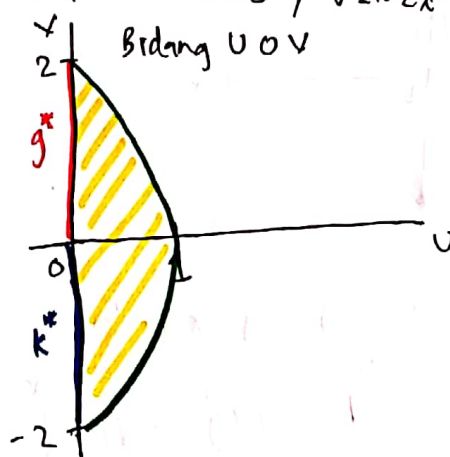 V
Bidang U O V
2
g*
U
0
1
K*
-2